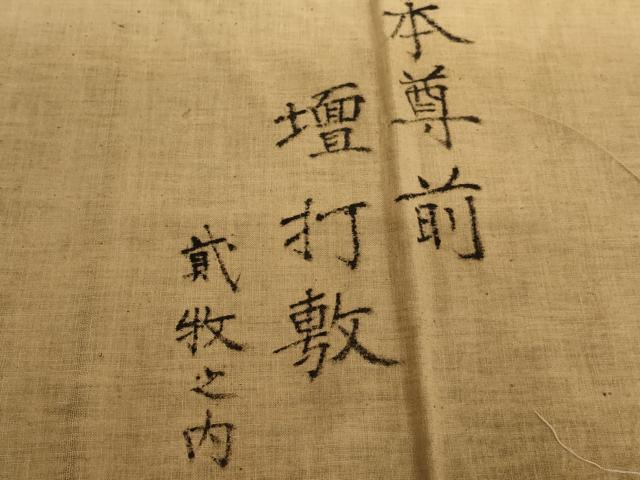 本尊前
壇打敷
貳牧之内